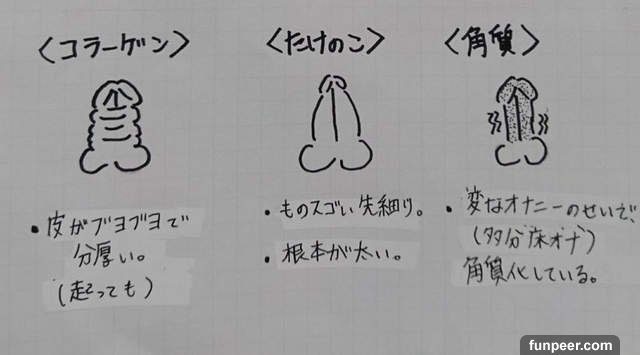 〈コラーゲン〉
・皮がブヨブヨで
分厚い。
(起っても)
〈たけのこ〉
・ものスゴい先細り。
・根本が太い。
〈角質〉
・変なオナニーのせいで、
(多分床オナ)
角質化している。
funpeer.com